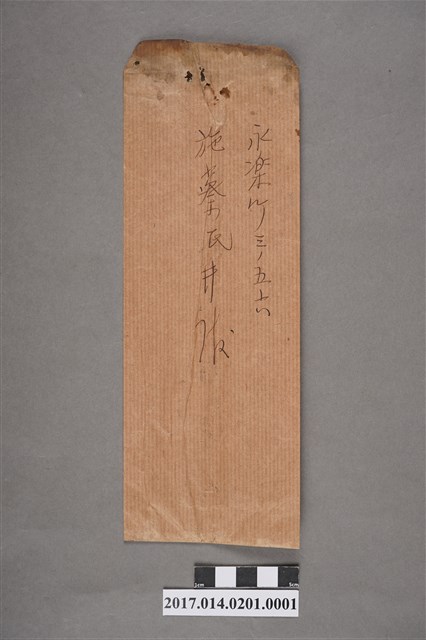 永楽町三ノ五六
施蔡氏井様
1cm
5cm
2017.014.0201.0001